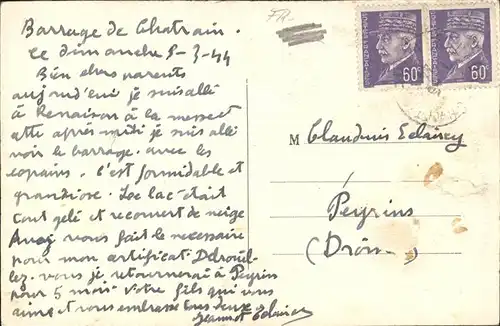 Barrage de Chatrain.
ce dimanche 5-3-44
Bien chers parents
aujourd'eui je suis allé
à Renaison à la messe et
cette après midi je suis allé
voir le barrage. avec les
copains. C'est formidable et
grandiose. Le lac était
tout gelé et recouvert de neige
Avez vous fait le necessaire
pour mon certificat
vous je retournerai à Peyrins
pour 5 mois. Votre fils qui vous
aime et vous embrasse tous deux
Jeannot Eclaircy
FR-
60c
60c
M Claudius Eclaircy
Peyrins
(Drôme)